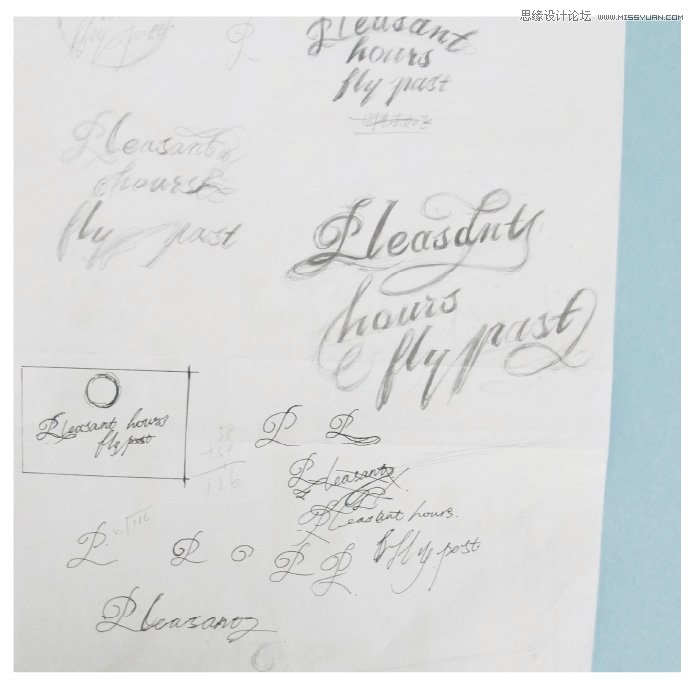 思缘设计论坛 WWW.MISSYUAN.COM
fly past
P
Pleasant
hours
fly past
Pleasant
hours
fly past
Pleasant
hours
fly past
Pleasant hours
fly past
P P
58
+58
116
Pleasant
Pleasant hours.
fly past
116
P P P P
Pleasant